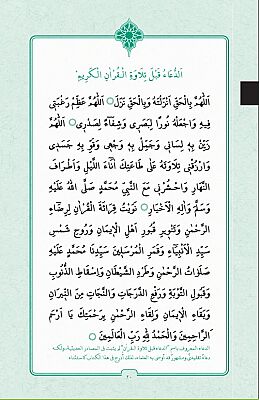 اَلدُّعَاءُ قَبْلَ تِلَاوَةِ الْقُرْاٰنِ الْكَرِيمِ
اَللّٰهُمَّ بِالْحَقِّ اَنْزَلْتَهُ وَبِالْحَقِّ نَزَلَ اَللّٰهُمَّ عَظِّمْ رَغْبَتِي
فِيهِ وَاجْعَلْهُ نُورًا لِبَصَرِي وَشِفَاءً لِصَدْرِي اَللّٰهُمَّ
زَيِّنْ بِهِ لِسَانِي وَجَمِّلْ بِهِ وَجْهِي وَقَوِّ بِهِ جَسَدِي
وَارْزُقْنِي تِلَاوَتَهُ عَلٰى طَاعَتِكَ اٰنَاءَ الَّيْلِ وَاَطْرَافَ
النَّهَارِ وَاحْشُرْنِي مَعَ النَّبِيِّ مُحَمَّدٍ صَلَّى اللّٰهُ عَلَيْهِ
وَسَلَّمَ وَاٰلِهِ الْاَخْيَارِ نَوَيْتُ قِرَائَةَ الْقُرْاٰنِ لِرِضَاءِ
الرَّحْمٰنِ وَتَنْوِيرِ قُبُورِ اَهْلِ الْاِيمَانِ وَرُوحِ شَمْسِ
سَيِّدِ الْاَنْبِيَاءِ وَقَمَرِ الْمُرْسَلِينَ سَيِّدِنَا مُحَمَّدٍ عَلَيْهِ
صَلَوَاتُ الرَّحْمٰنِ وَطَرْدِ الشَّيْطَانِ وَاِسْقَاطِ الذُّنُوبِ
وَقَبُولِ التَّوْبَةِ وَرَفْعِ الدَّرَجَاتِ وَالنَّجَاتِ مِنَ النِّيرَانِ
وَبَقَاءِ الْاِيمَانِ وَلِقَاءِ الرَّحْمٰنِ بِرَحْمَتِكَ يَا اَرْحَمَ
الرَّاحِمِينَ وَالْحَمْدُ لِلّٰهِ رَبِّ الْعَالَمِينَ